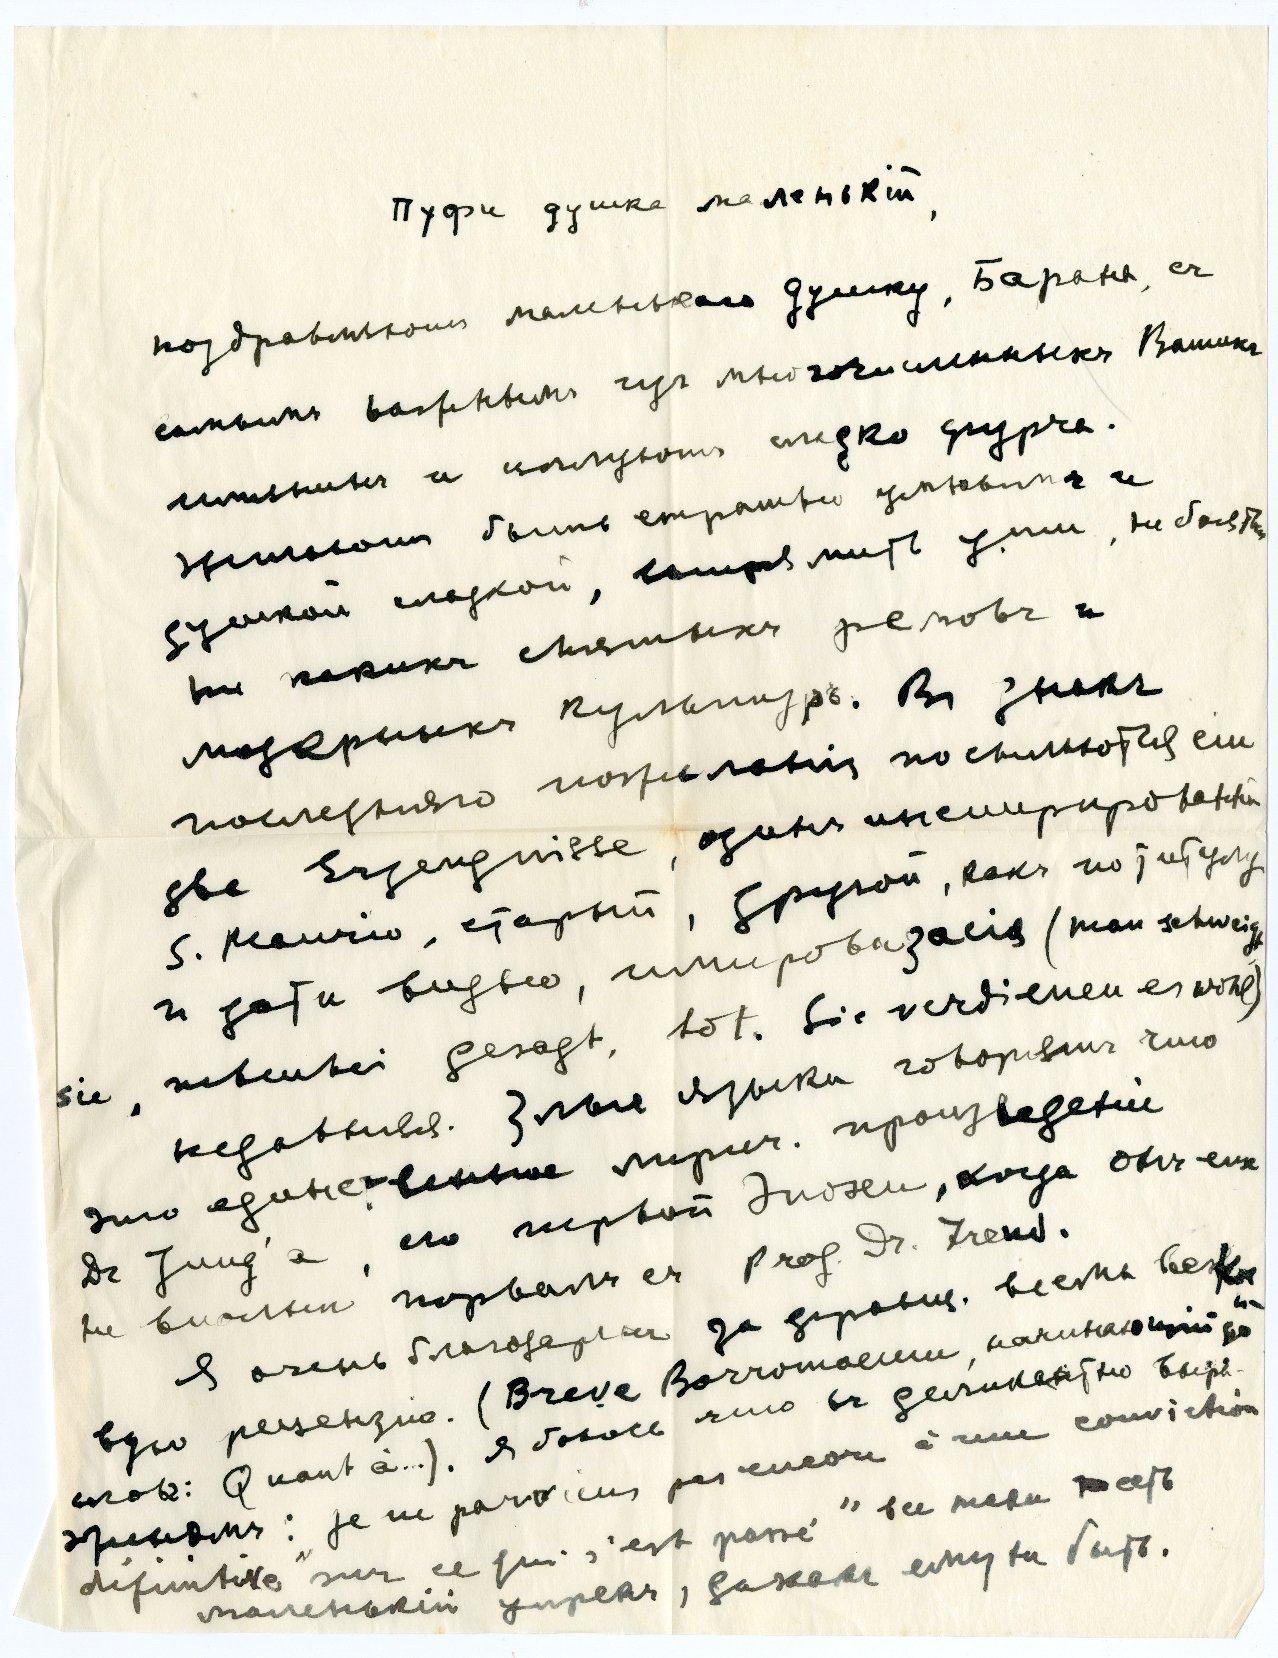 Пуфи душка маленькій,
поздравляютъ маленькаго душку, Барана, съ
самымъ важнымъ изъ многочисленныхъ Вашихъ
имянинъ и цѣлуютъ сладко фурча.
Желаютъ быть страшно умнымъ и
душкой сладкой, уши, не боятся
ни какихъ смятыхъ ремовъ и
модерныхъ культуръ. Въ знакъ
послѣдняго пожеланія посылаются ей
два Erzeugnisse, одинъ инспирированный
S. Mauricio, старый, другой, какъ по титулу
и дати видно, импровизація (man schweigt
sie, nebenbei gesagt, tot. Sie verdienen es wohl)
недавняя. Злые языки говорятъ что
это единственное лирич. произведеніе
Dr Jung'a, его первой Эпохи, когда онъ еще
не порвалъ съ Prof. Dr. Freud.
Я очень благодаренъ за
рецензію. (Breve Borromaeum, начинающій
словъ: Quant à...). Я боюсь что въ деликатно выра-
женномъ: je ne parviens pas encore à une conviction
définitive "sur ce qui s'est passé" все таки есть
маленькій упрекъ, ему ни быть.